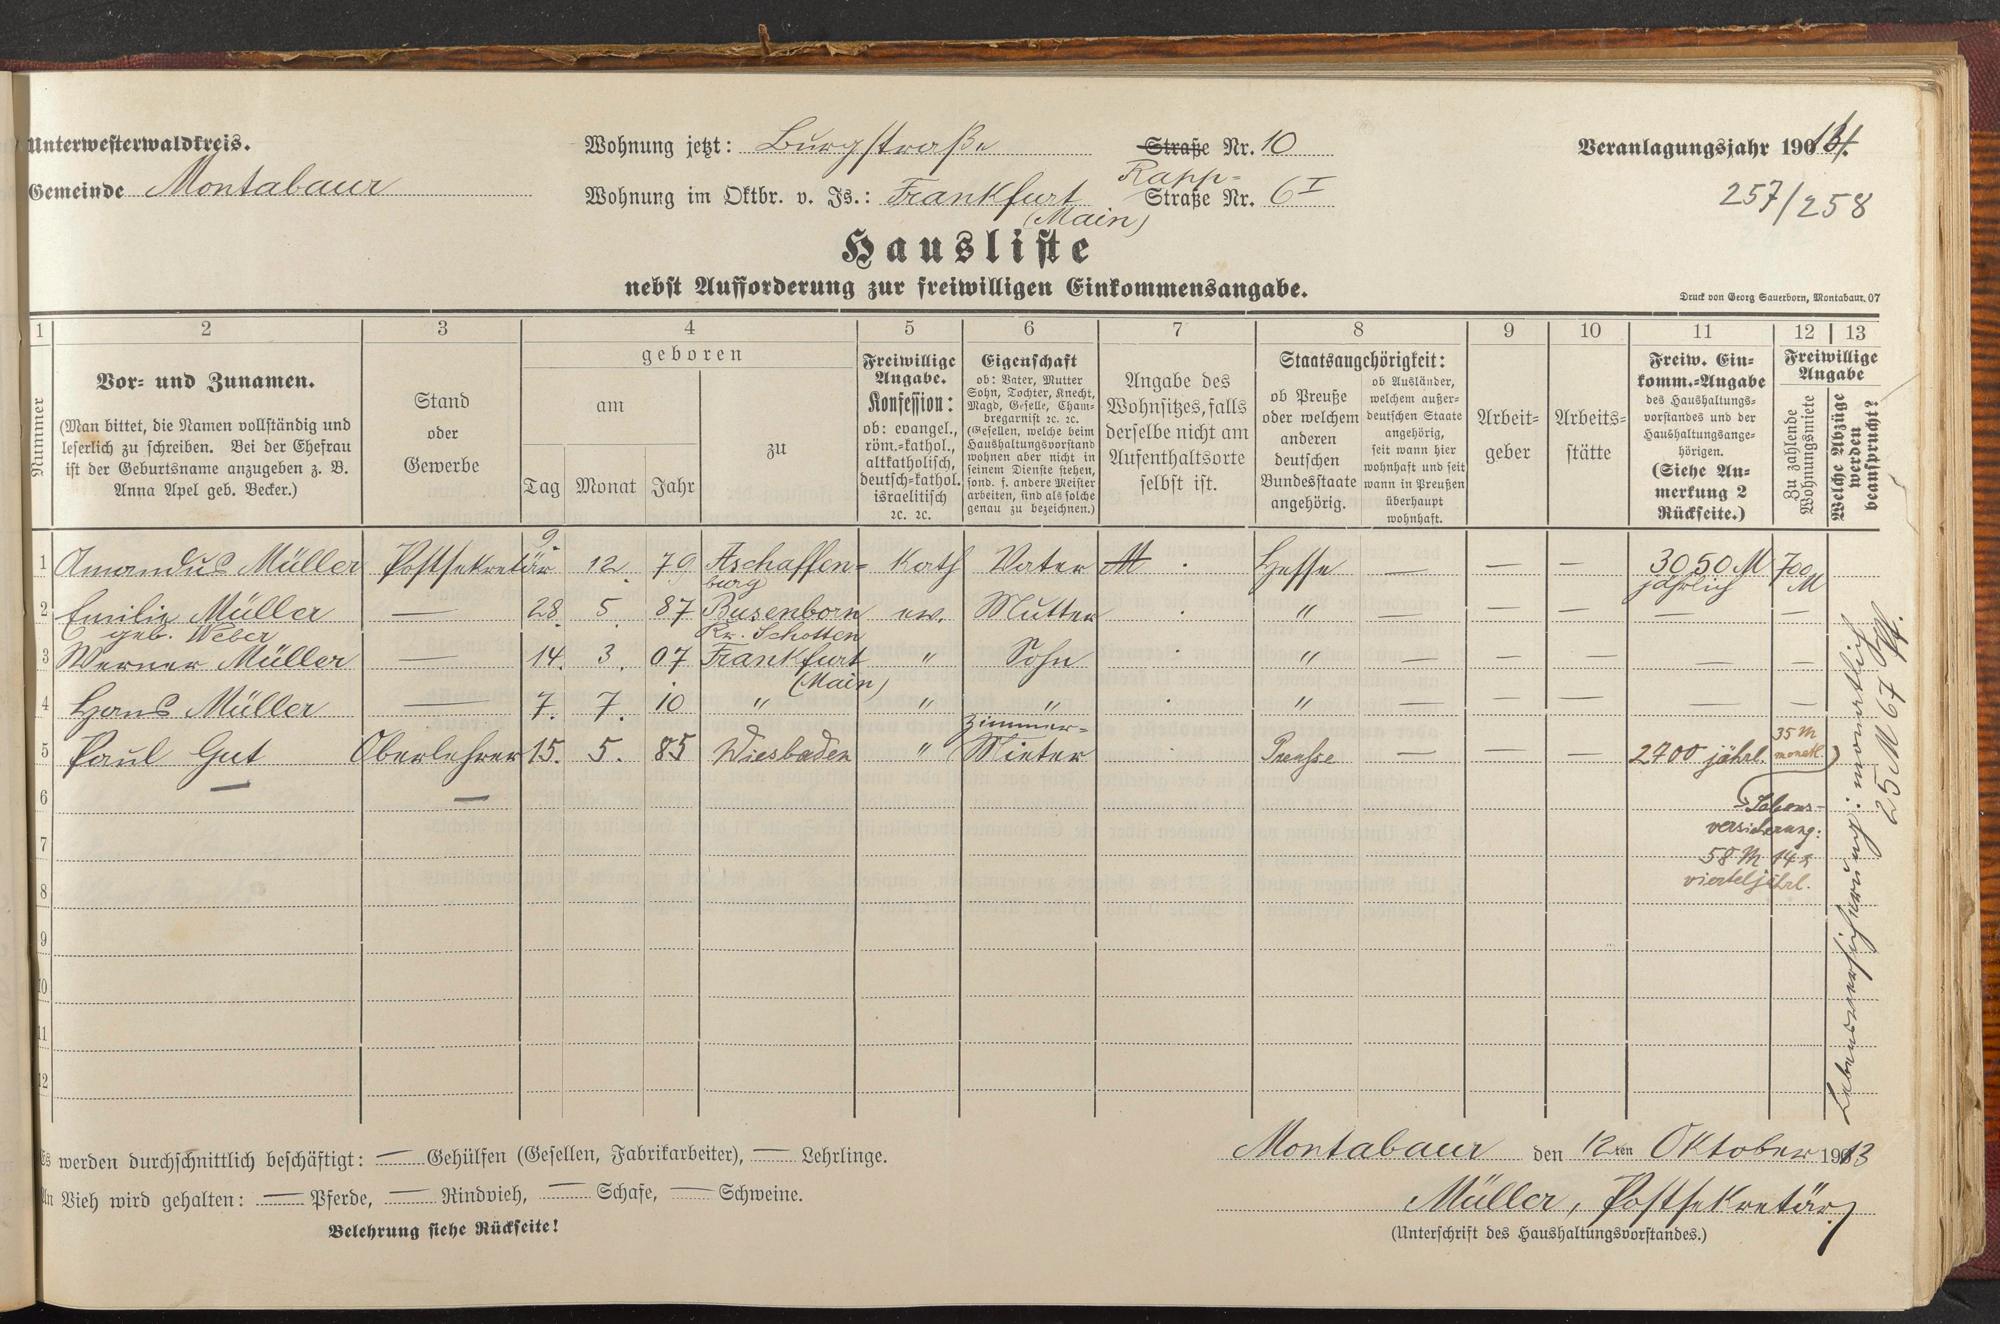 Unterwesterwaldkreis.
Gemeinde Montabaur
Wohnung jetzt: Burgstraße Straße Nr. 10
Wohnung im Oktbr. v. Js.: Frankfurt (Main) Rapp-Straße Nr. 6 I
Veranlagungsjahr 1914.
257/258
Hausliste
nebst Aufforderung zur freiwilligen Einkommensangabe.
Druck von Georg Sauerborn, Montabaur. 07
1 2 3 4 5 6 7 8 9 10 11 12 13
Nummer
Vor- und Zunamen.
(Man bittet, die Namen vollständig und
leserlich zu schreiben. Bei der Ehefrau
ist der Geburtsname anzugeben z. B.
Anna Apel geb. Becker.)
Stand
oder
Gewerbe
geboren
am
Tag Monat Jahr
zu
Freiwillige
Angabe.
Konfession:
ob: evangel.,
röm.-kathol.,
altkatholisch,
deutsch-kathol.
israelitisch
ꝛc. ꝛc.
Eigenschaft
ob: Vater, Mutter
Sohn, Tochter, Knecht,
Magd, Geselle, Cham-
bregarnist ꝛc. ꝛc.
(Gesellen, welche beim
Haushaltungsvorstand
wohnen aber nicht in
seinem Dienste stehen,
sond. f. andere Meister
arbeiten, sind als solche
genau zu bezeichnen.)
Angabe des
Wohnsitzes, falls
derselbe nicht am
Aufenthaltsorte
selbst ist.
Staatsangehörigkeit:
ob Preuße
oder welchem
anderen
deutschen
Bundesstaate
angehörig.
ob Ausländer,
welchem außer-
deutschen Staate
angehörig,
seit wann hier
wohnhaft und seit
wann in Preußen
überhaupt
wohnhaft.
Arbeit-
geber
Arbeits-
stätte
Freiw. Ein-
komm.-Angabe
des Haushaltungs-
vorstandes und der
Haushaltungsange-
hörigen.
(Siehe An-
merkung 2
Rückseite.)
Freiwillige
Angabe
Zu zahlende
Wohnungsmiete
Welche Abzüge
werden
beansprucht?
1 Amandus Müller Postsekretär 9. 12. 79 Aschaffen-burg Kath Vater Hesse — — — 3050 M jährlich 700 M
2 Emilie Müller geb. Weber — 28. 5. 87 Busenborn Kr. Schotten ev. Mutter " — — — — —
3 Werner Müller — 14. 3. 07 Frankfurt (Main) " Sohn " — — — — —
4 Hans Müller — 7. 7. 10 " " " " — — — — —
5 Paul Gut Oberlehrer 15. 5. 85 Wiesbaden " Zimmer-Mieter Preusse — — — 2700 jährl. 35 M monatl.
6 — —
7
8
9
10
11
12
Lebens-
versicherung:
58 M 14 ₰
vierteljährl.
Lebensversicherung: monatlich
25 M 67 Pf.
Es werden durchschnittlich beschäftigt: — Gehülfen (Gesellen, Fabrikarbeiter), — Lehrlinge.
An Vieh wird gehalten: — Pferde, — Rindvieh, — Schafe, — Schweine.
Belehrung siehe Rückseite!
Montabaur den 12ten Oktober 1913
Müller, Postsekretär
(Unterschrift des Haushaltungsvorstandes.)